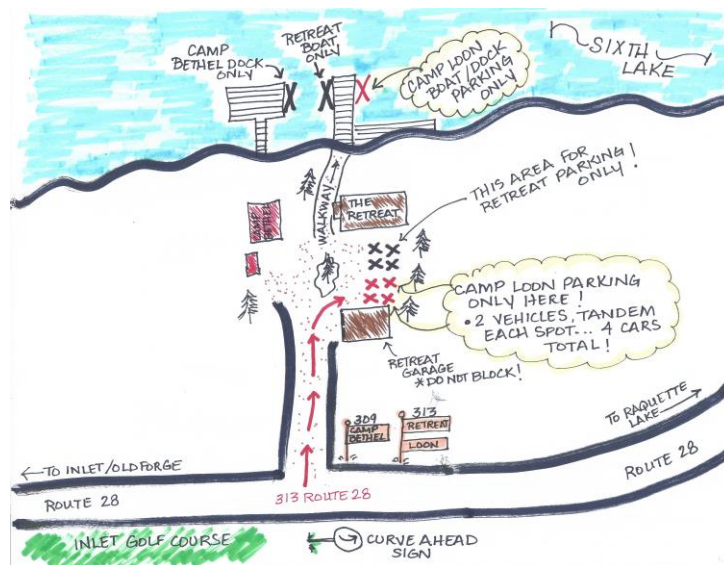 CAMP
BETHEL DOCK
ONLY
RETREAT
BOAT
ONLY
CAMP LOON
BOAT/DOCK
PARKING
ONLY
SIXTH
LAKE
THIS AREA FOR
RETREAT PARKING!
ONLY!
WALKWAY
THE
RETREAT
CAMP
BETHEL
CAMP LOON PARKING
ONLY HERE!
• 2 VEHICLES, TANDEM
EACH SPOT... 4 CARS
TOTAL!
RETREAT
GARAGE
*DO NOT BLOCK!
309
CAMP
BETHEL
313
RETREAT
LOON
TO RAQUETTE
LAKE
TO INLET/OLD FORGE
ROUTE 28
313 ROUTE 28
ROUTE 28
INLET GOLF COURSE
CURVE AHEAD
SIGN